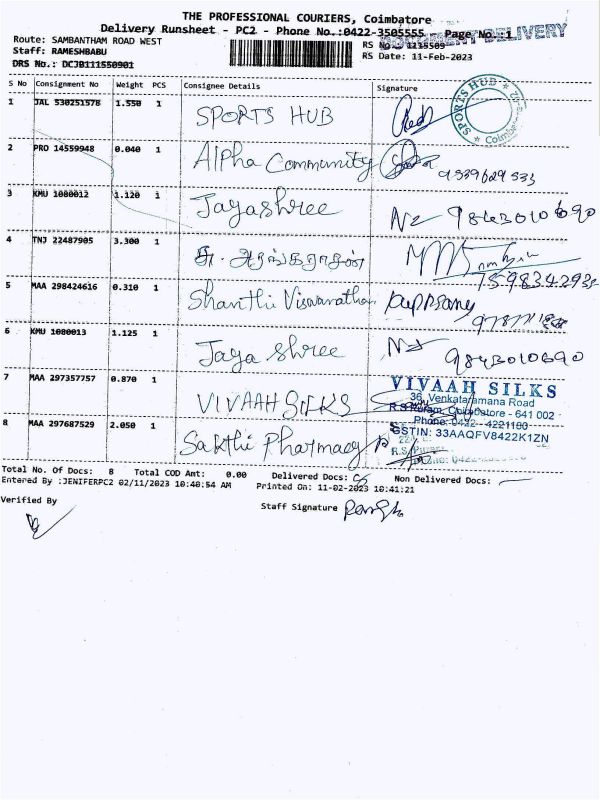 THE PROFESSIONAL COURIERS, Coimbatore
Delivery Runsheet - PC2 - Phone No.:0422-3505555 - Page No. 1
DELIVERY
Route: SAMBANTHAM ROAD WEST
RS No.: 1235509
Staff: RAMESHBABU
RS Date: 11-Feb-2023
DRS No.: DCJB111550901
S No Consignment No Weight PCS Consignee Details Signature
SPORTS HUB
Coimbatore
1 JAL 530251578 1.550 1 SPORTS HUB
2 PRO 14559948 0.040 1 Alpha Community 9539629533
3 KMU 1080012 1.120 1 Jayashree 9843010690
4 TNJ 22487905 3.300 1 சு. அரங்கராசன்
5 MAA 298424616 0.310 1 Shanthi Viswanathan
6 KMU 1080013 1.125 1 Jaya shree 9843010690
7 MAA 297357757 0.870 1 VIVAAH SILKS
VIVAAH SILKS
36, Venkataramana Road
R.S.Puram, Coimbatore - 641 002
Phone: 0422 - 4221180
GSTIN: 33AAQFV8422K1ZN
8 MAA 297687529 2.050 1 Sakthi Pharmacy
R.S. Puram
Total No. Of Docs: 8 Total COD Amt: 0.00 Delivered Docs: Non Delivered Docs:
Entered By :JENIFERPC2 02/11/2023 10:40:54 AM Printed On: 11-02-2023 10:41:21
Verified By
Staff Signature